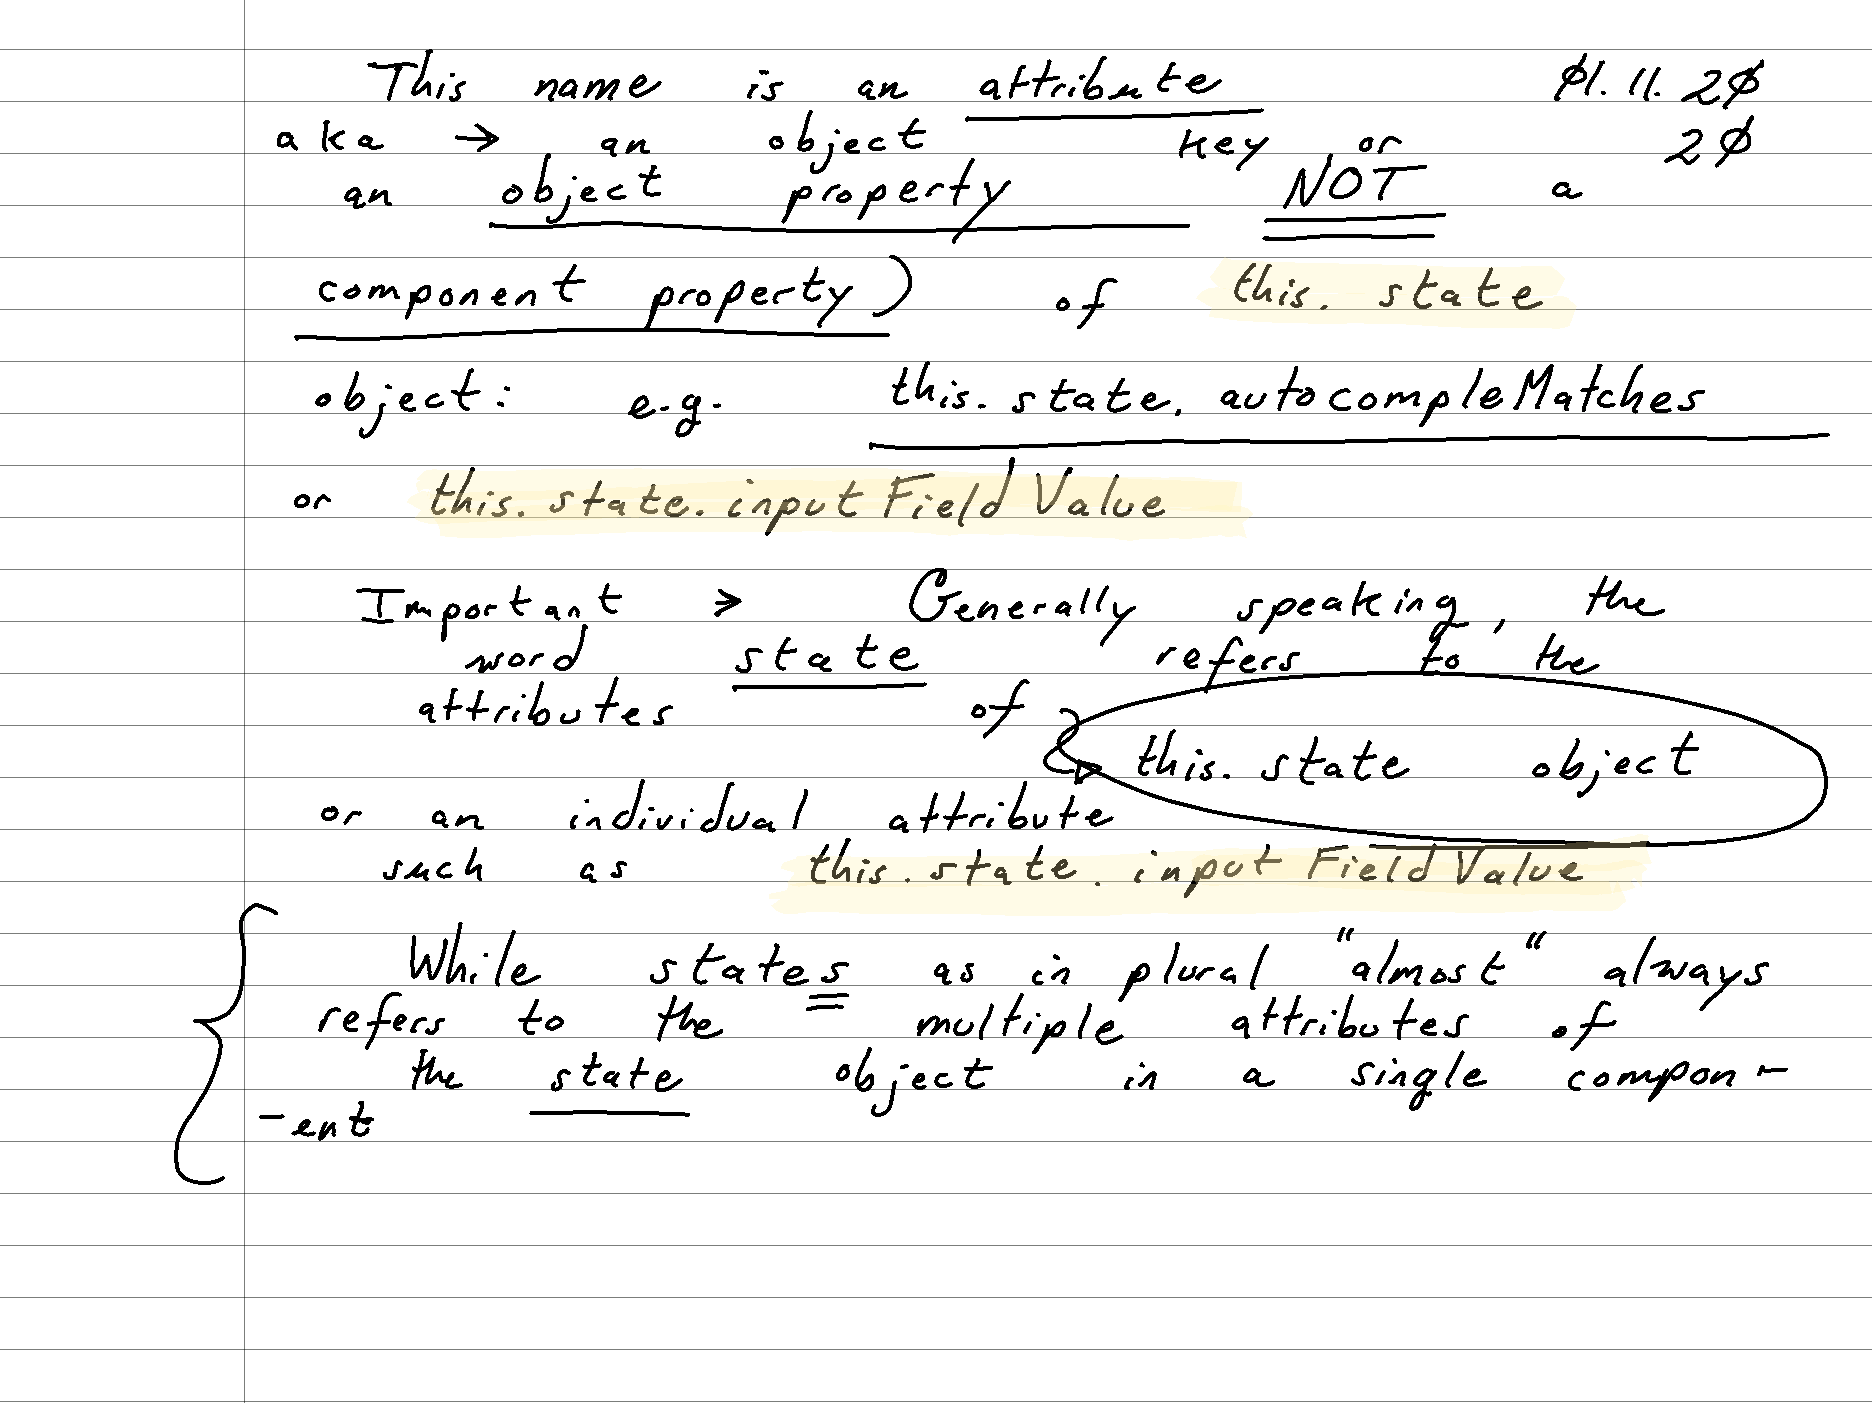 This name is an attribute 01.11.20
aka → an object key or 20
an object property NOT a
component property) of this. state
object: e.g. this. state. autocompleMatches
or this. state. input Field Value
Important > Generally speaking, the
word state refers to the
attributes of
this. state object
or an individual attribute
such as this. state. input Field Value
While states as in plural "almost" always
refers to the multiple attributes of
the state object in a single compon-
-ent